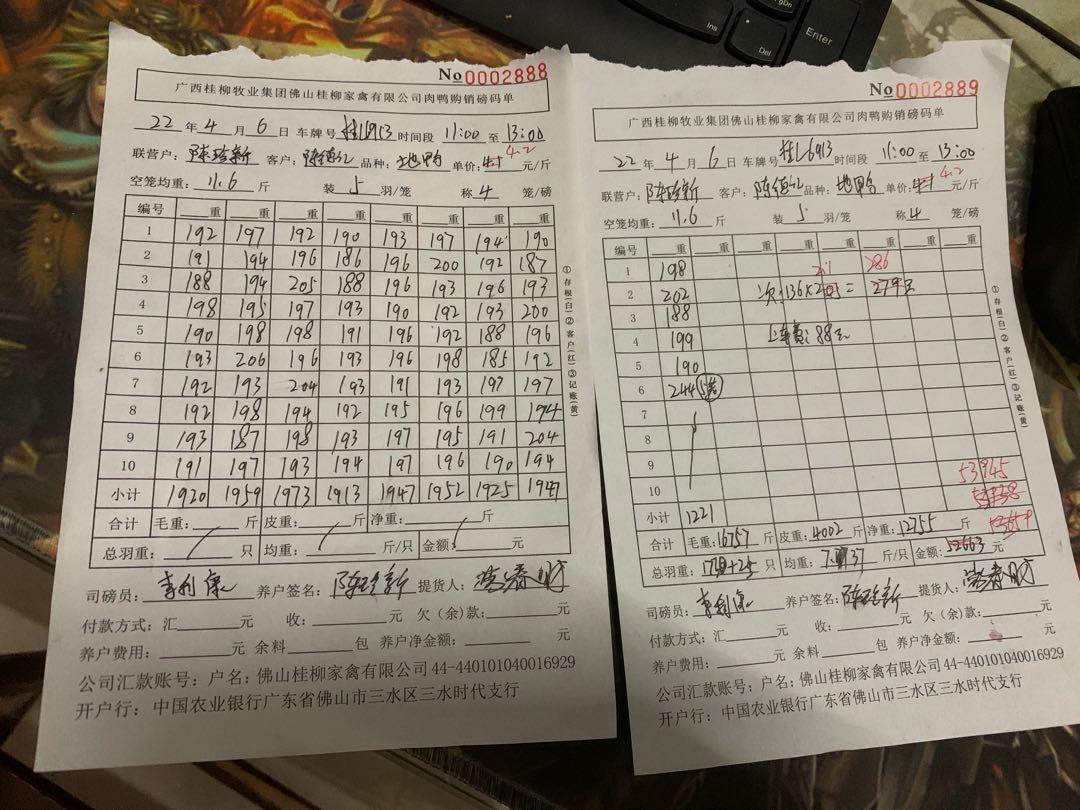 Ins
PgDn
Del
Enter
No 0002888
广西桂柳牧业集团佛山桂柳家禽有限公司肉鸭购销磅码单
22 年 4 月 6 日 车牌号 桂L6913 时间段 11:00 至 13:00
联营户: 陈培新 客户: 陈德江 品种: 地鸭 单价: 4.2 元/斤
空笼均重: 11.6 斤 装 5 羽/笼 称 4 笼/磅
编号 重 重 重 重 重 重 重 重
1 192 197 192 190 193 197 194 190
2 191 194 196 186 196 200 192 187
3 188 194 205 188 196 193 196 193
4 198 195 197 193 190 192 193 200
5 190 198 198 191 196 192 188 196
6 193 206 196 193 196 198 185 192
7 192 193 204 193 191 193 197 197
8 192 198 194 192 195 196 199 194
9 193 187 198 193 197 195 191 204
10 191 197 193 194 197 196 190 194
小计 1920 1959 1973 1913 1947 1952 1925 1947
合计 毛重: 斤 皮重: 斤 净重: 斤
总羽重: 只 均重: 斤/只 金额: 元
司磅员: 养户签名: 陈培新 提货人:
付款方式: 汇 元 收: 元 欠(余)款: 元
养户费用: 元 余料 包 养户净金额: 元
公司汇款账号: 户名: 佛山桂柳家禽有限公司 44-440101040016929
开户行: 中国农业银行广东省佛山市三水区三水时代支行
①存根(白)②客户(红)③记账(黄)
No 0002889
广西桂柳牧业集团佛山桂柳家禽有限公司肉鸭购销磅码单
22 年 4 月 6 日 车牌号 桂L6913 时间段 11:00 至 13:00
联营户: 陈培新 客户: 陈德江 品种: 地鸭 单价: 4.2 元/斤
空笼均重: 11.6 斤 装 5 羽/笼 称 4 笼/磅
编号 重 重 重 重 重 重 重 重
1 198 2.1 286
2 202
3 188
4 199 上车费: 88元
5 190
6 244 5笼
7
8
9
10 53945
小计 1221
合计 毛重: 16757 斤 皮重: 4002 斤 净重: 12755 斤
总羽重: 只 均重: 斤/只 金额: 52663 元
司磅员: 养户签名: 陈培新 提货人:
付款方式: 汇 元 收: 元 欠(余)款: 元
养户费用: 元 余料 包 养户净金额: 元
公司汇款账号: 户名: 佛山桂柳家禽有限公司 44-440101040016929
开户行: 中国农业银行广东省佛山市三水区三水时代支行
①存根(白)②客户(红)③记账(黄)